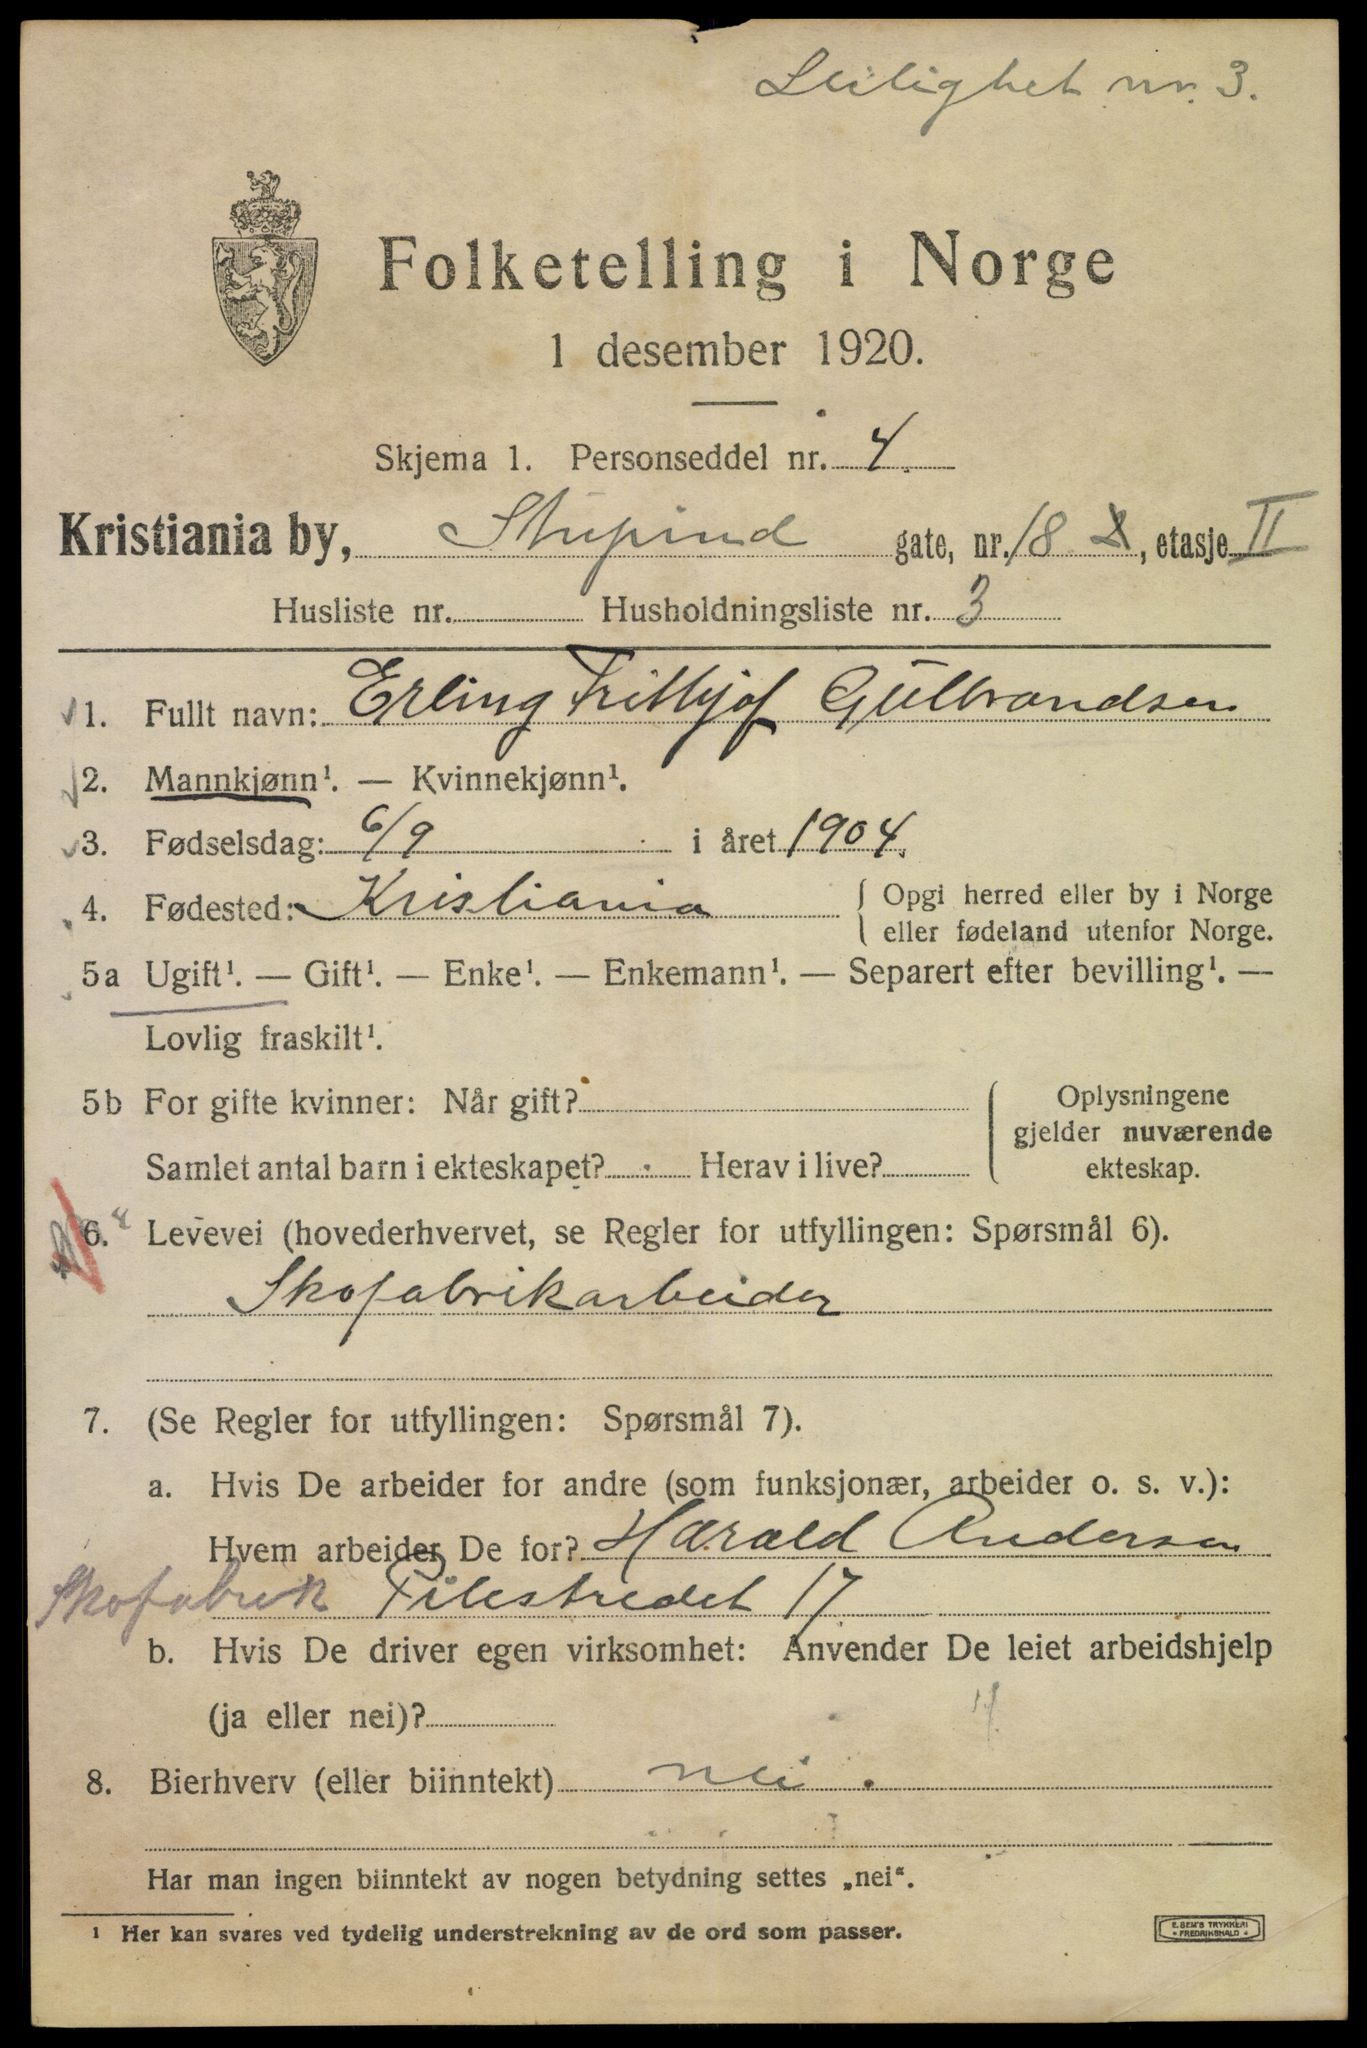 Leilighet nr. 3.
Folketelling i Norge
1 desember 1920.
Skjema 1. Personseddel nr. 4.
Kristiania by, Stupind gate, nr. 18, etasje II
Husliste nr. Husholdningsliste nr. 3
1. Fullt navn: Erling Frithjof Gulbrandsen
2. Mannkjønn¹. — Kvinnekjønn¹.
3. Fødselsdag: 6/9 i året 1904.
4. Fødested: Kristiania { Opgi herred eller by i Norge
eller fødeland utenfor Norge.
5a Ugift¹. — Gift¹. — Enke¹. — Enkemann¹. — Separert efter bevilling¹. —
Lovlig fraskilt¹.
5b For gifte kvinner: Når gift? { Oplysningene
gjelder nuværende
Samlet antal barn i ekteskapet? Herav i live? ekteskap.
6. Levevei (hovederhvervet, se Regler for utfyllingen: Spørsmål 6).
Skofabrikarbeider
7. (Se Regler for utfyllingen: Spørsmål 7).
a. Hvis De arbeider for andre (som funksjonær, arbeider o. s. v.):
Hvem arbeider De for? Harald Andersen
Skofabrik Pilestredet 17
b. Hvis De driver egen virksomhet: Anvender De leiet arbeidshjelp
(ja eller nei)?
8. Bierhverv (eller biinntekt) nei.
Har man ingen biinntekt av nogen betydning settes „nei“.
¹ Her kan svares ved tydelig understrekning av de ord som passer.
E. SEM'S TRYKKERI
FREDRIKSHALD